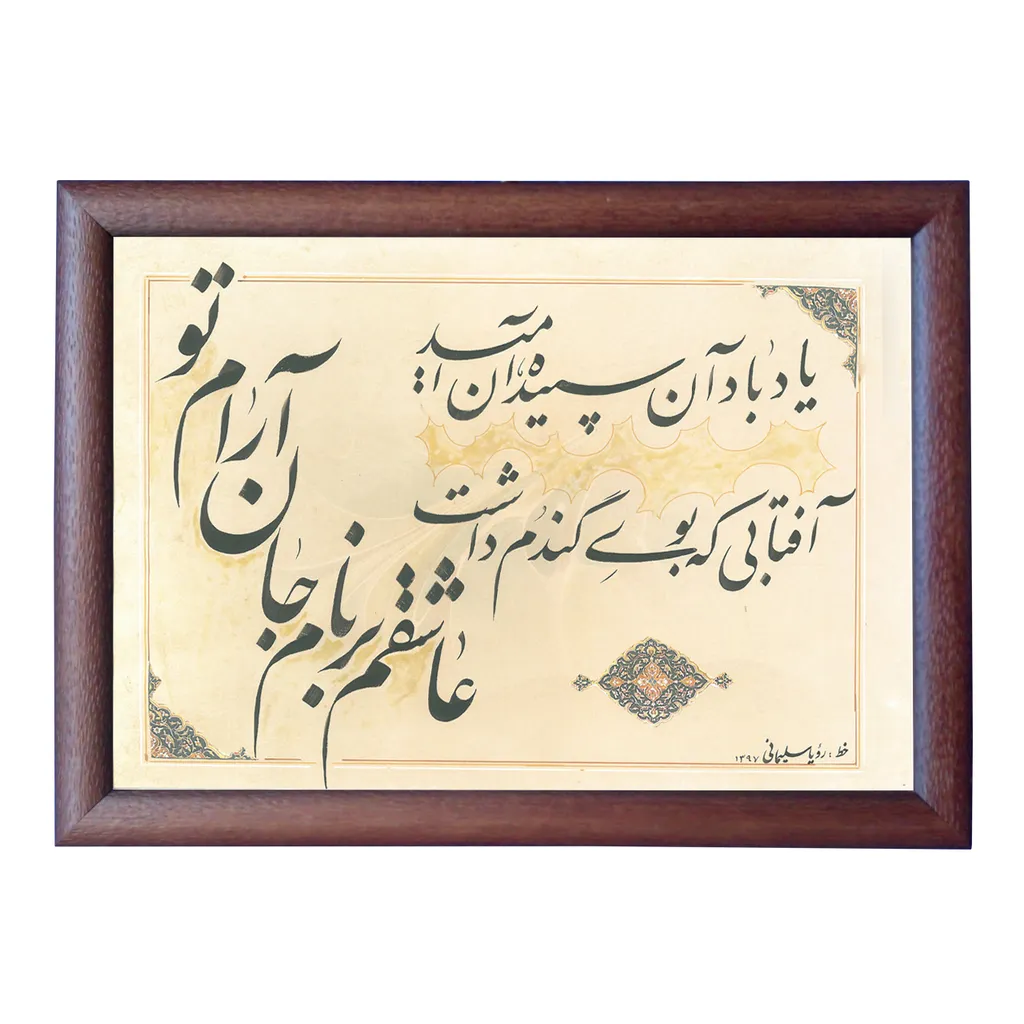 یاد باد آن سپیده، آن امّید
آفتابی که بوے گندم داشت
عاشقم بر نام جان آرام تو
خط : رؤیا سلیمانی ۱۳۹۷